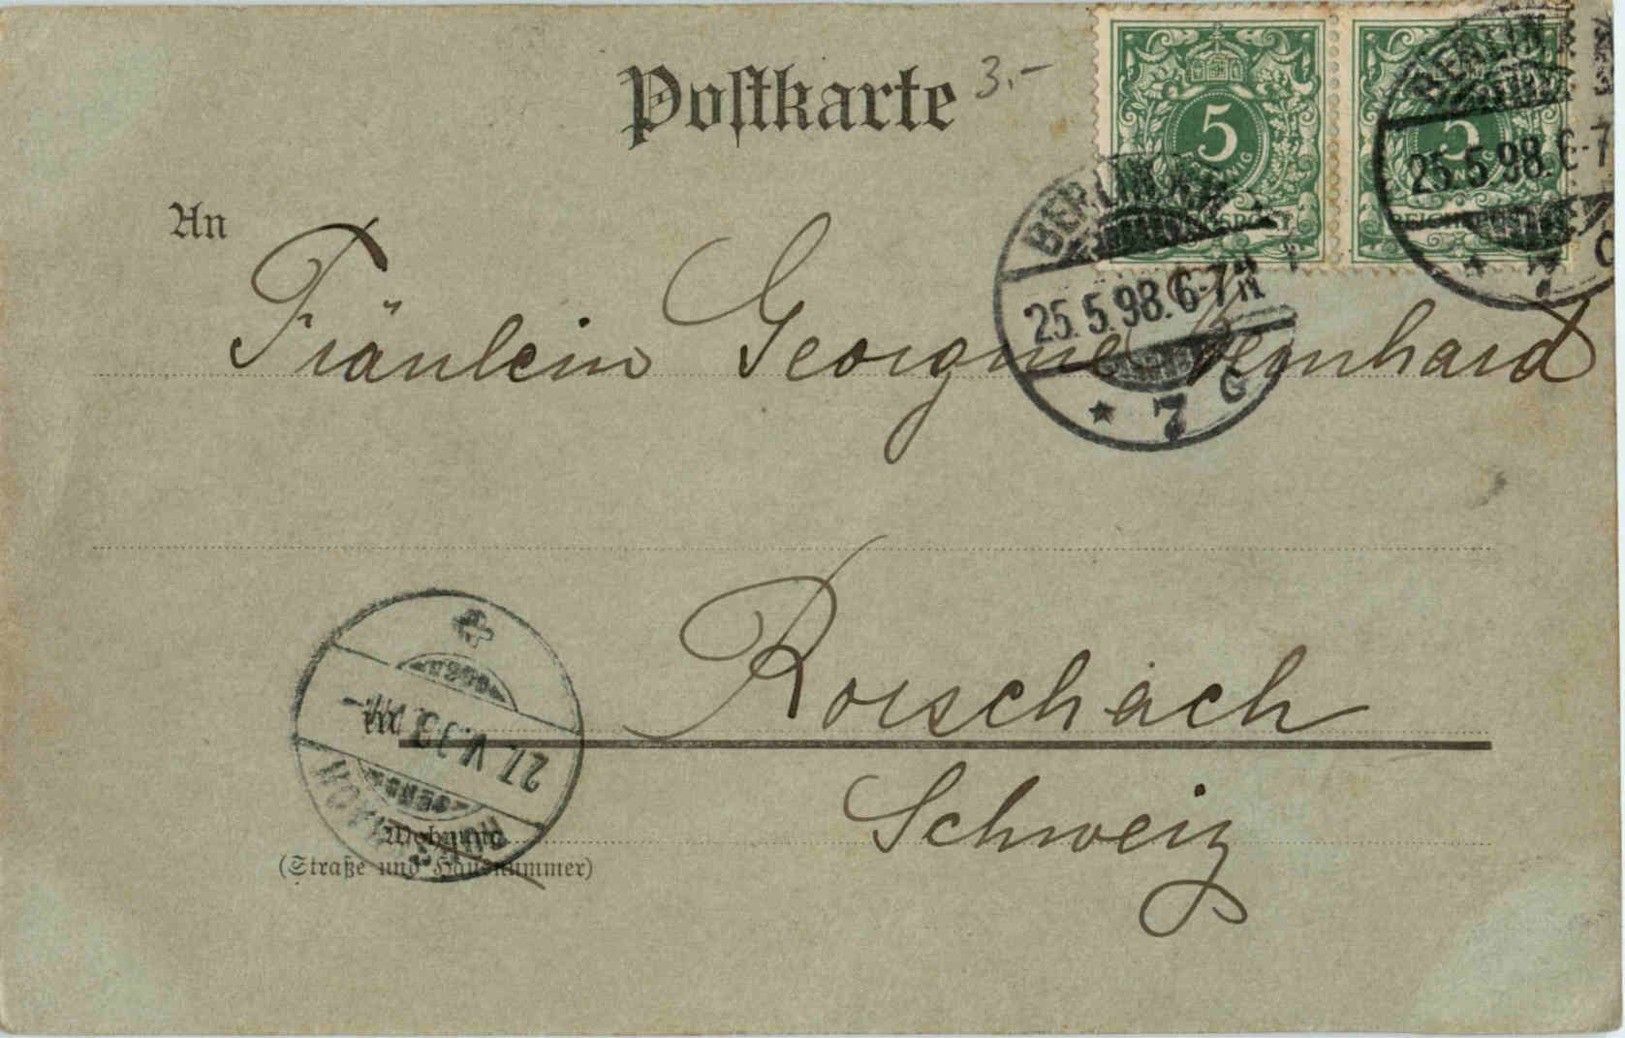 Postkarte 3.-
5 5
PFENNIG
REICHSPOST REICHSPOST
BERLIN BERLIN
25.5.98.6-7N 25.5.98.6-7
* 7 C * 7 C
An
Fräulein Georgine Bernhard
Rorschach
Schweiz
27.V.98
RORSCHACH
Wohnung
(Straße und Hausnummer)